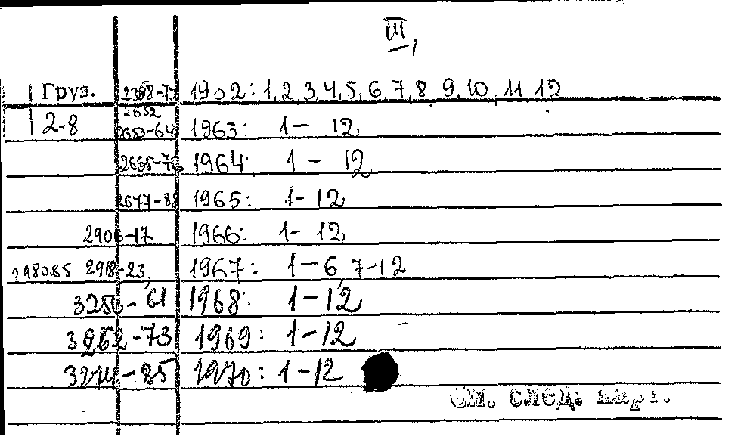 III,
Груз. 1962: 1, 2, 3, 4, 5, 6, 7, 8 9, 10, 11 12
2-8 1963: 1 - 12,
1964: 1 - 12
1965: 1 - 12
2906-17 1966: 1 - 12,
2918-23, 1967: 1 - 6, 7-12
3250-61 1968: 1 - 12
3262-73 1969: 1 - 12
3274-85 1970: 1 - 12
см. след. карт.